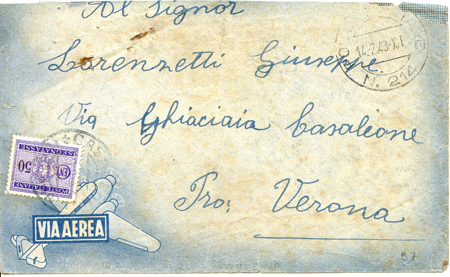 Al Signor
Lorenzetti Giuseppe
Via Ghiaciaia Casaleone
Pro: Verona
14.2.43-XXI
N. 214
POSTE ITALIANE
50
SEGNATASSE
VIA AEREA
B7